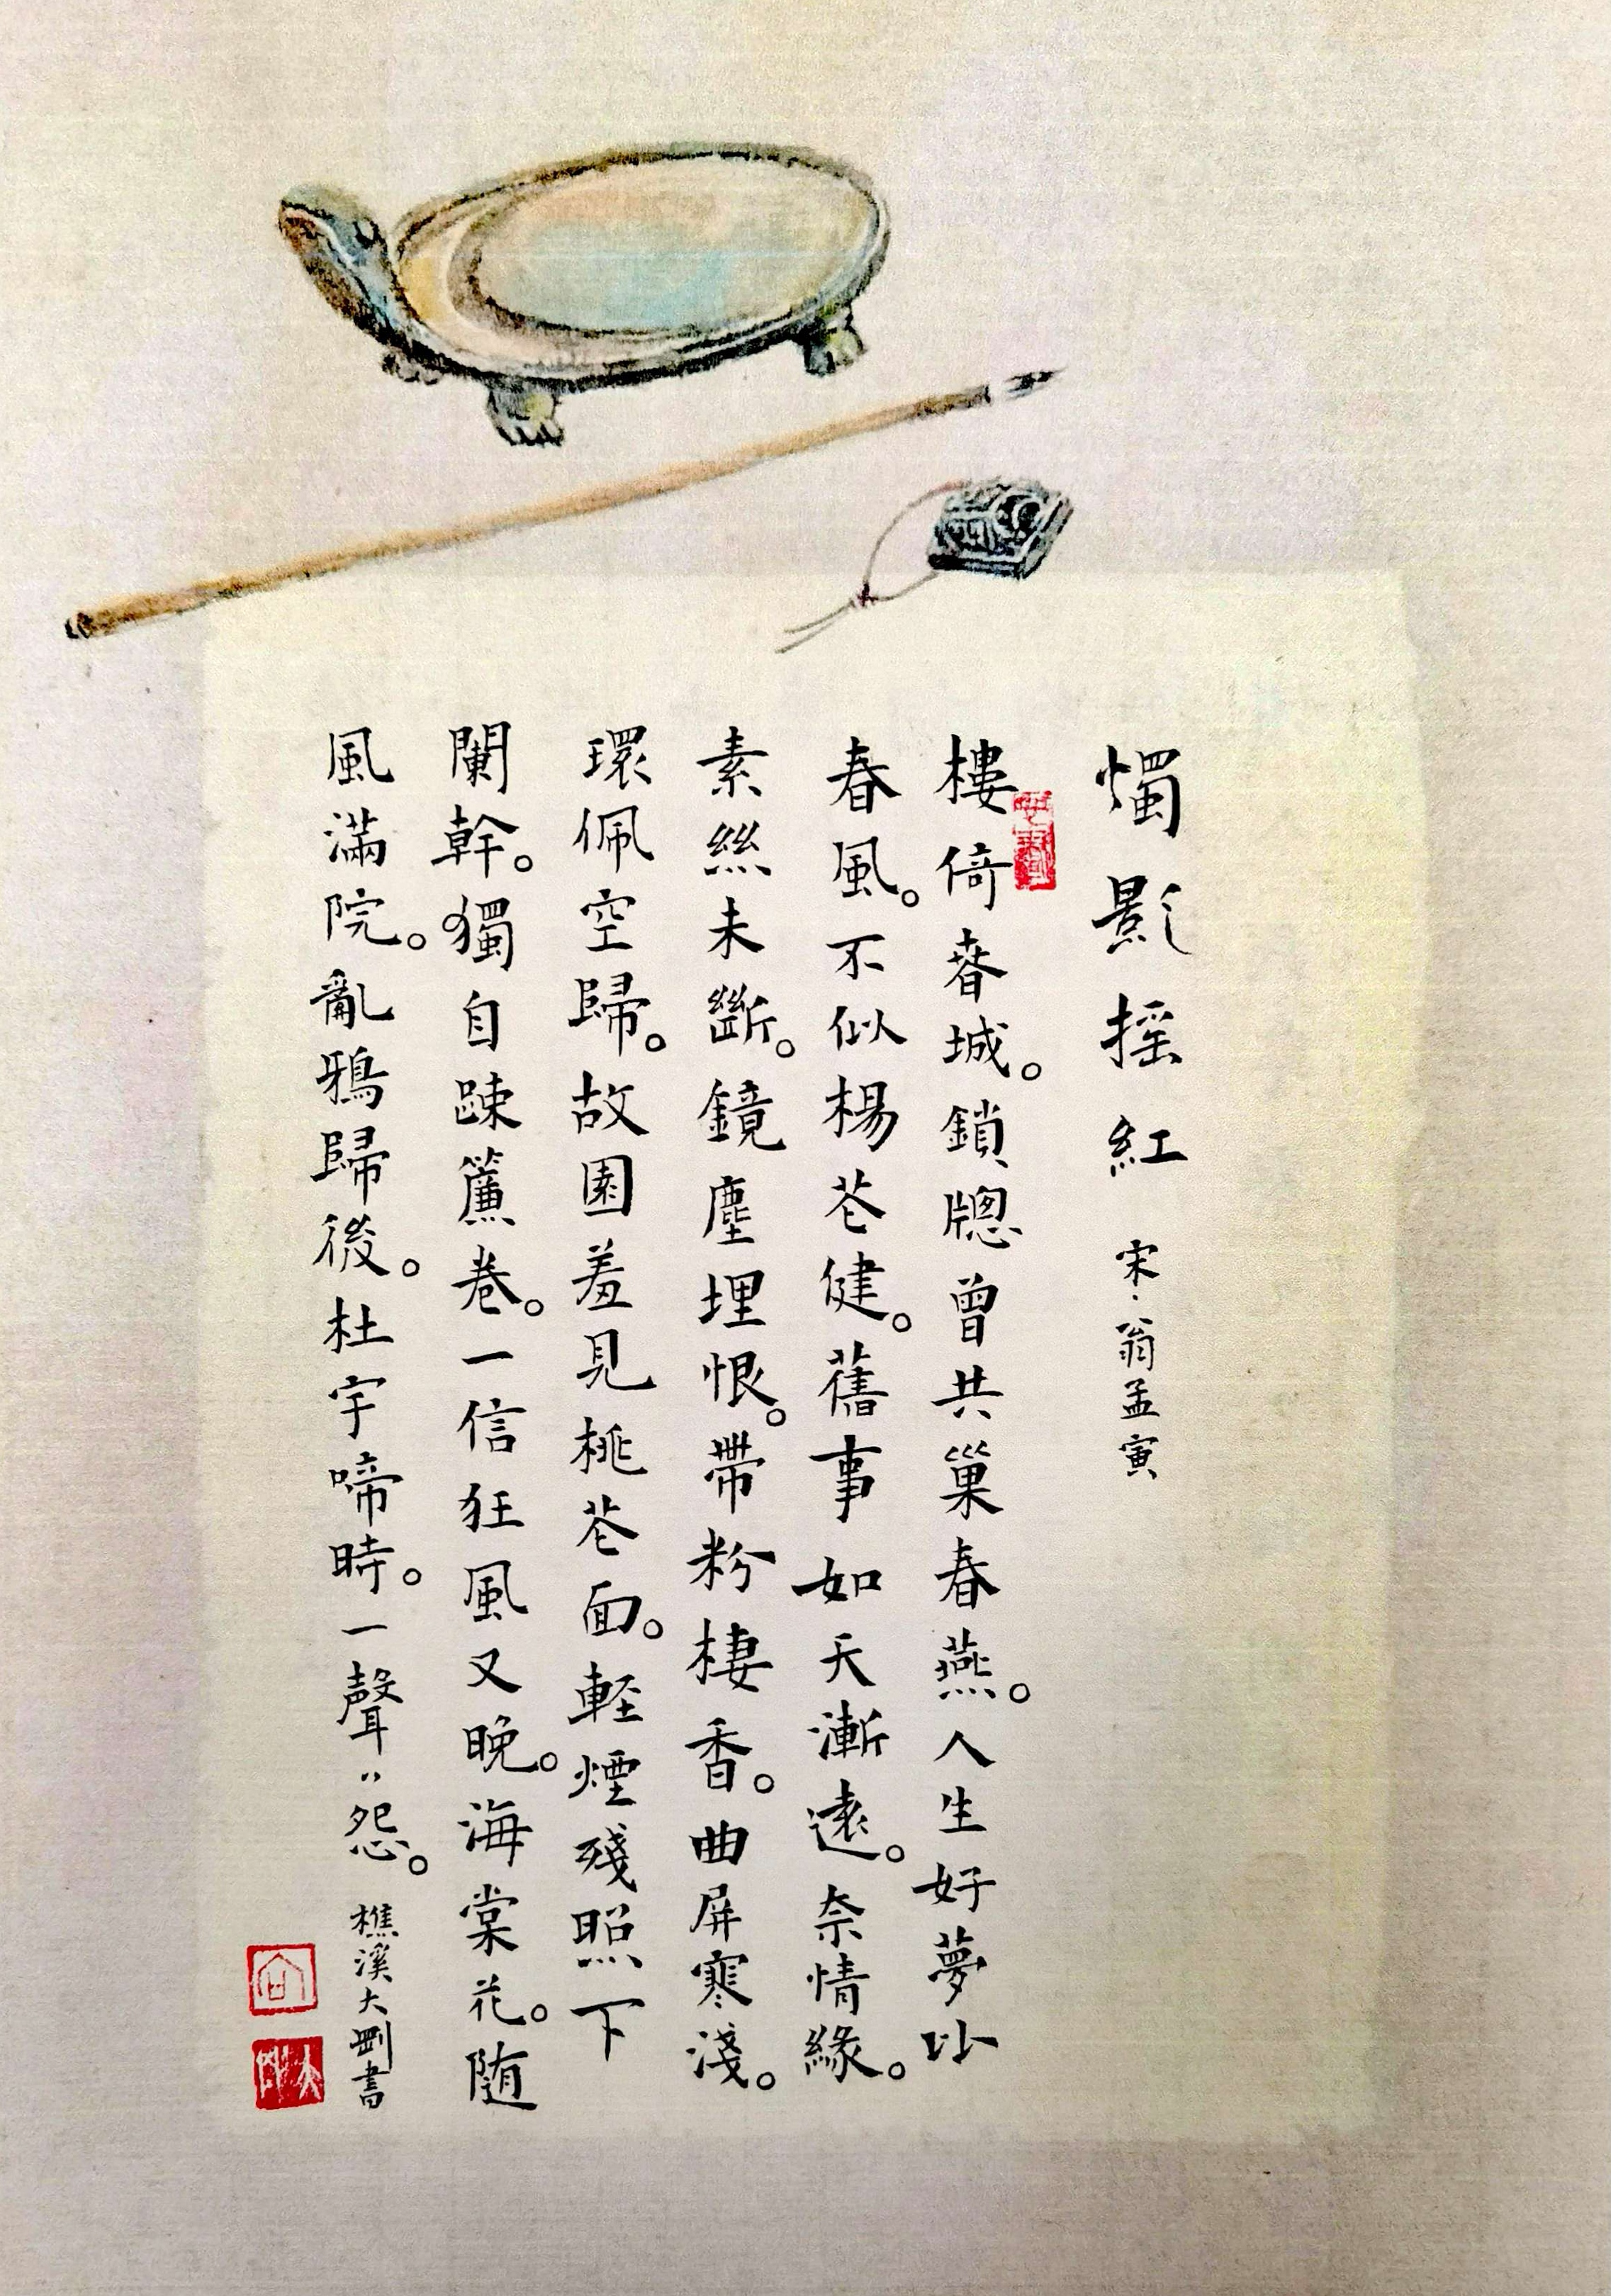 燭影摇紅 宋·翁孟寅
樓倚春城。鎖牕曾共巢春燕。人生好夢比
春風。不似楊花健。舊事如天漸遠。奈情緣。
素絲未斷。鏡塵埋恨。帶粉棲香。曲屏寒淺。
環佩空歸。故園羞見桃花面。軽煙殘照下
闌幹。獨自踈簾卷。一信狂風又晚。海棠花。随
風滿院。亂鴉歸後。杜宇啼時。一聲〃怨。
樵溪大剛書